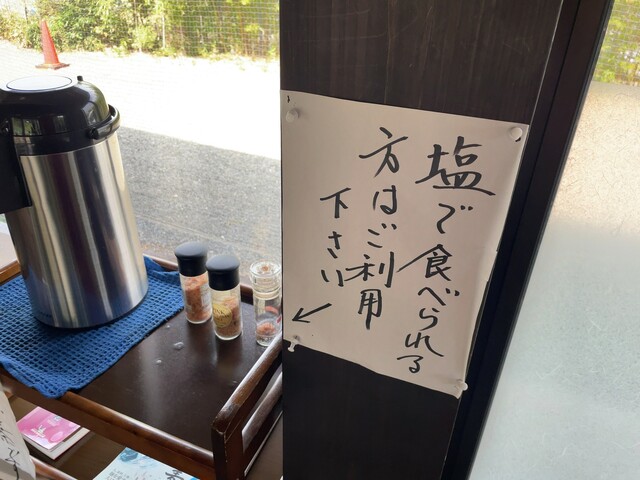 塩で食べられる
方はご利用
下さい